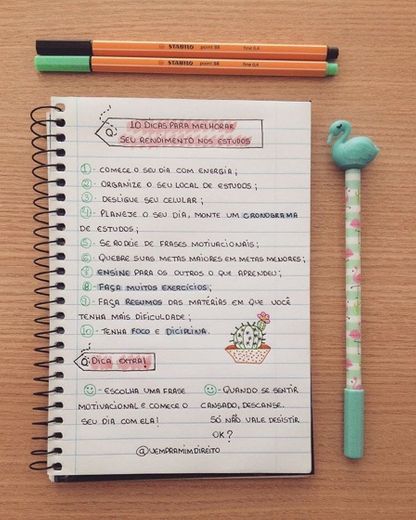 STABILO point 88 fine 0,4
STABILO point 88 fine 0,4
10 DICAS PARA MELHORAR
SEU RENDIMENTO NOS ESTUDOS
1 - COMECE O SEU DIA COM ENERGIA;
2 - ORGANIZE O SEU LOCAL DE ESTUDOS;
3 - DESLIGUE SEU CELULAR;
4 - PLANEJE O SEU DIA, MONTE UM CRONOGRAMA
DE ESTUDOS;
5 - SE RODEIE DE FRASES MOTIVACIONAIS;
6 - QUEBRE SUAS METAS MAIORES EM METAS MENORES;
7 - ENSINE PARA OS OUTROS O QUE APRENDEU;
8 - FAÇA MUITOS EXERCÍCIOS;
9 - FAÇA RESUMOS DAS MATÉRIAS EM QUE VOCÊ
TENHA MAIS DIFICULDADE;
10 - TENHA FOCO E DICIPLINA.
DICA EXTRA!
- ESCOLHA UMA FRASE
MOTIVACIONAL E COMECE O
SEU DIA COM ELA!
- QUANDO SE SENTIR
CANSADO, DESCANSE.
SÓ NÃO VALE DESISTIR
OK?
@VEMPRAMIMDIREITO